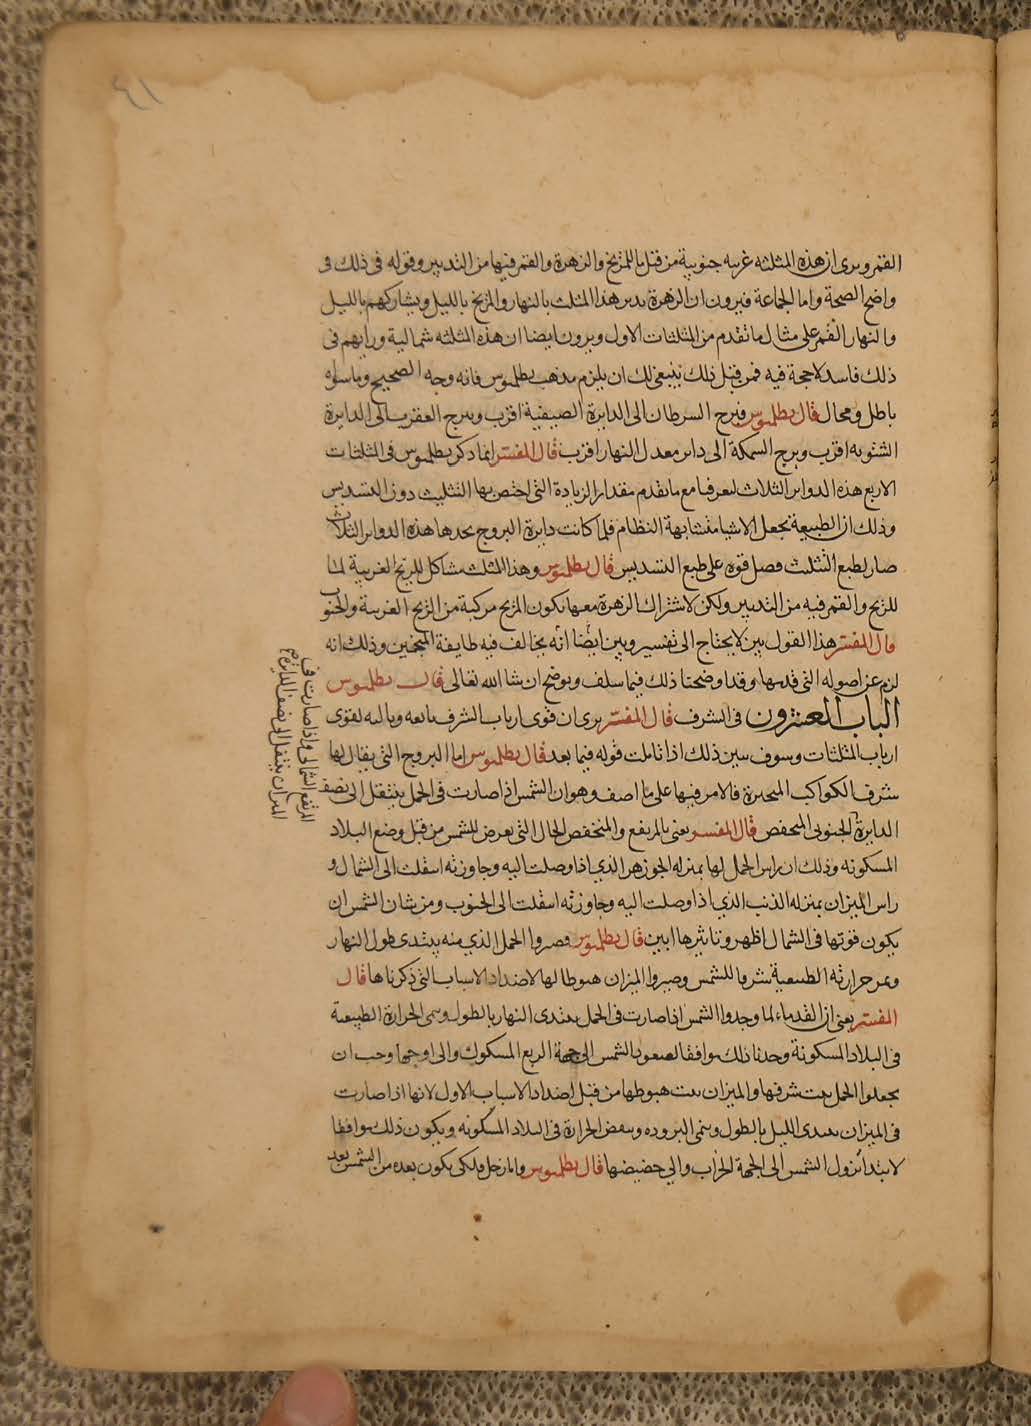 ٤١
القمر ويرى ان هذه المثلثه غربيه جنوبية من قبل بالمريخ والزهرة والقمر فيها من التدبير وقوله في ذلك
واضح الصحة واما الجماعة فيرون ان الزهرة يدبر هذا المثلث بالنهار والمريخ بالليل ويشاركهم بالليل
والنهار القمر على مثال ما تقدم من المثلثات الاول ويرون ايضا ان هذه المثلثه شمالية ورايهم في
ذلك فاسد لا حجة فيه فمن قبل ذلك ينبغي لك ان يلزم مذهب بطلميوس فانه وجه الصحيح وما سواه
باطل ومحال قال بطلميوس فبرج السرطان الى الدايرة الصيفية اقرب وبرج العقرب الى الدايرة
الشتويه اقرب وبرج السمكة الى داير معدل النهار اقرب قال المفسر انما ذكر بطلميوس في المثلثات
الاربع هذه الدواير الثلاث لتعرفنا مع ما تقدم مقدار الزيادة التي اختص بها التثليث دون التسديس
وذلك ان الطبيعة تجعل الاشيا متشابهة النظام فلما كانت دايرة البروج تحدها هذه الدواير الثلاث
صار لطبع التثليث فضل قوه على طبع التسديس قال بطلميوس وهذا المثلث مشاكل للريح الغربية لما
للمريخ والقمر فيه من التدبير ولكن لاشتراك الزهرة معها يكون المزيج مركبة من الريح الغربية والجنوب
قال المفسر هذا القول بين لا يحتاج الى تفسير وبين ايضا انه يخالف فيه طايفة المنجمين وذلك انه
لزم عن اصوله التي قدمها وقد اوضحنا ذلك فيما سلف ونوضح ان شا الله تعالى قال بطلميوس
الباب العشرون في الشرف قال المفسر يرى ان قوى ارباب الشرف تابعه وتاليه لقوى
ارباب المثلثات وسوف يتبين ذلك اذا تاملت قوله فيما بعد قال بطلميوس اما البروج التي يقال لها
شرف الكواكب المتحيرة فالامر فيها على ما اصف وهو ان الشمس اذا صارت في الحمل ينتقل الى نصف
الدايرة الجنوبي المنخفض قال المفسر يعني بالمرتفع والمنخفض الحال التي يعرض للشمس من قبل وضع البلاد
المسكونه وذلك ان راس الحمل لها بمنزله الجوزهر الذي اذا وصلت اليه وجاوزته اسقلت الى الشمال و
راس الميزان بمنزله الذنب الذي اذا وصلت اليه وجاوزته اسقلت الى الجنوب ومن شان الشمس ان
يكون قوتها في الشمال اظهر وتاثيرها ابين قال بطلميوس فصيروا الحمل الذي منه يبتدى طول النهار
ونمو حرارته الطبيعية شرفا للشمس وصيروا الميزان هبوطا لها لاضداد الاسباب التي ذكرناها قال
المفسر يعني ان القدماء لما وجدوا الشمس اذا صارت في الحمل يبتدى النهار بالطول وتنمى الحرارة الطبيعية
في البلاد المسكونة وجدنا ذلك موافقا لصعود الشمس الى جهة الربع المسكون والى اوجها وجب ان
يجعلوا الحمل بيت شرفها والميزان بيت هبوطها من قبل اضداد الاسباب الاول لانها اذا صارت
في الميزان يبتدى الليل بالطول وتنمى البروده وينقص الحرارة في البلاد المسكونه ويكون ذلك موافقا
لابتدا نزول الشمس الى الجهة الخراب والى حضيضها قال بطلميوس واما زحل فلكي يكون بعده من الشمس بعد
المرتفع الشمالي واذا صارت في
الميزان ينتقل الى نصف الدايره